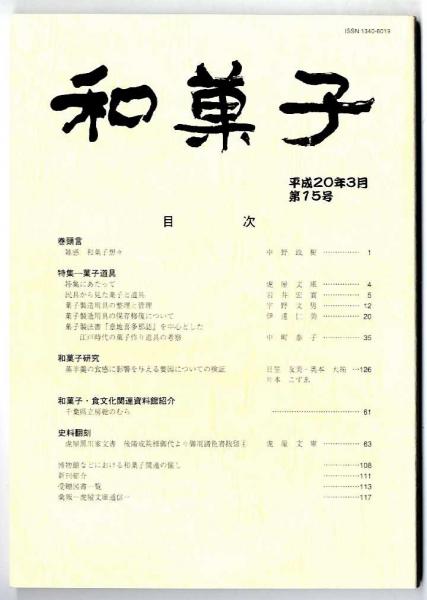 ISSN 1340-6019
和菓子
平成20年3月
第15号
目 次
巻頭言
雑感 和菓子想々 中野政樹 1
特集―菓子道具
特集にあたって 虎屋文庫 4
民具から見た菓子と道具 岩井宏實 5
菓子製造用具の整理と管理 宇野文男 12
菓子製造用具の保存修復について 伊達仁美 20
菓子製法書『意地喜多那誌』を中心とした
江戸時代の菓子作り道具の考察 中町泰子 35
和菓子研究
蒸羊羹の食感に影響を与える要因についての検証 奥本 大祐 126
こずゑ
和菓子・食文化関連資料館紹介
千葉県立房総のむら 61
史料翻刻
虎屋黒川家文書 虎屋文庫 63
博物館などにおける和菓子関連の催し 108
新刊紹介 111
受贈図書一覧 113
彙報―虎屋文庫通信― 117